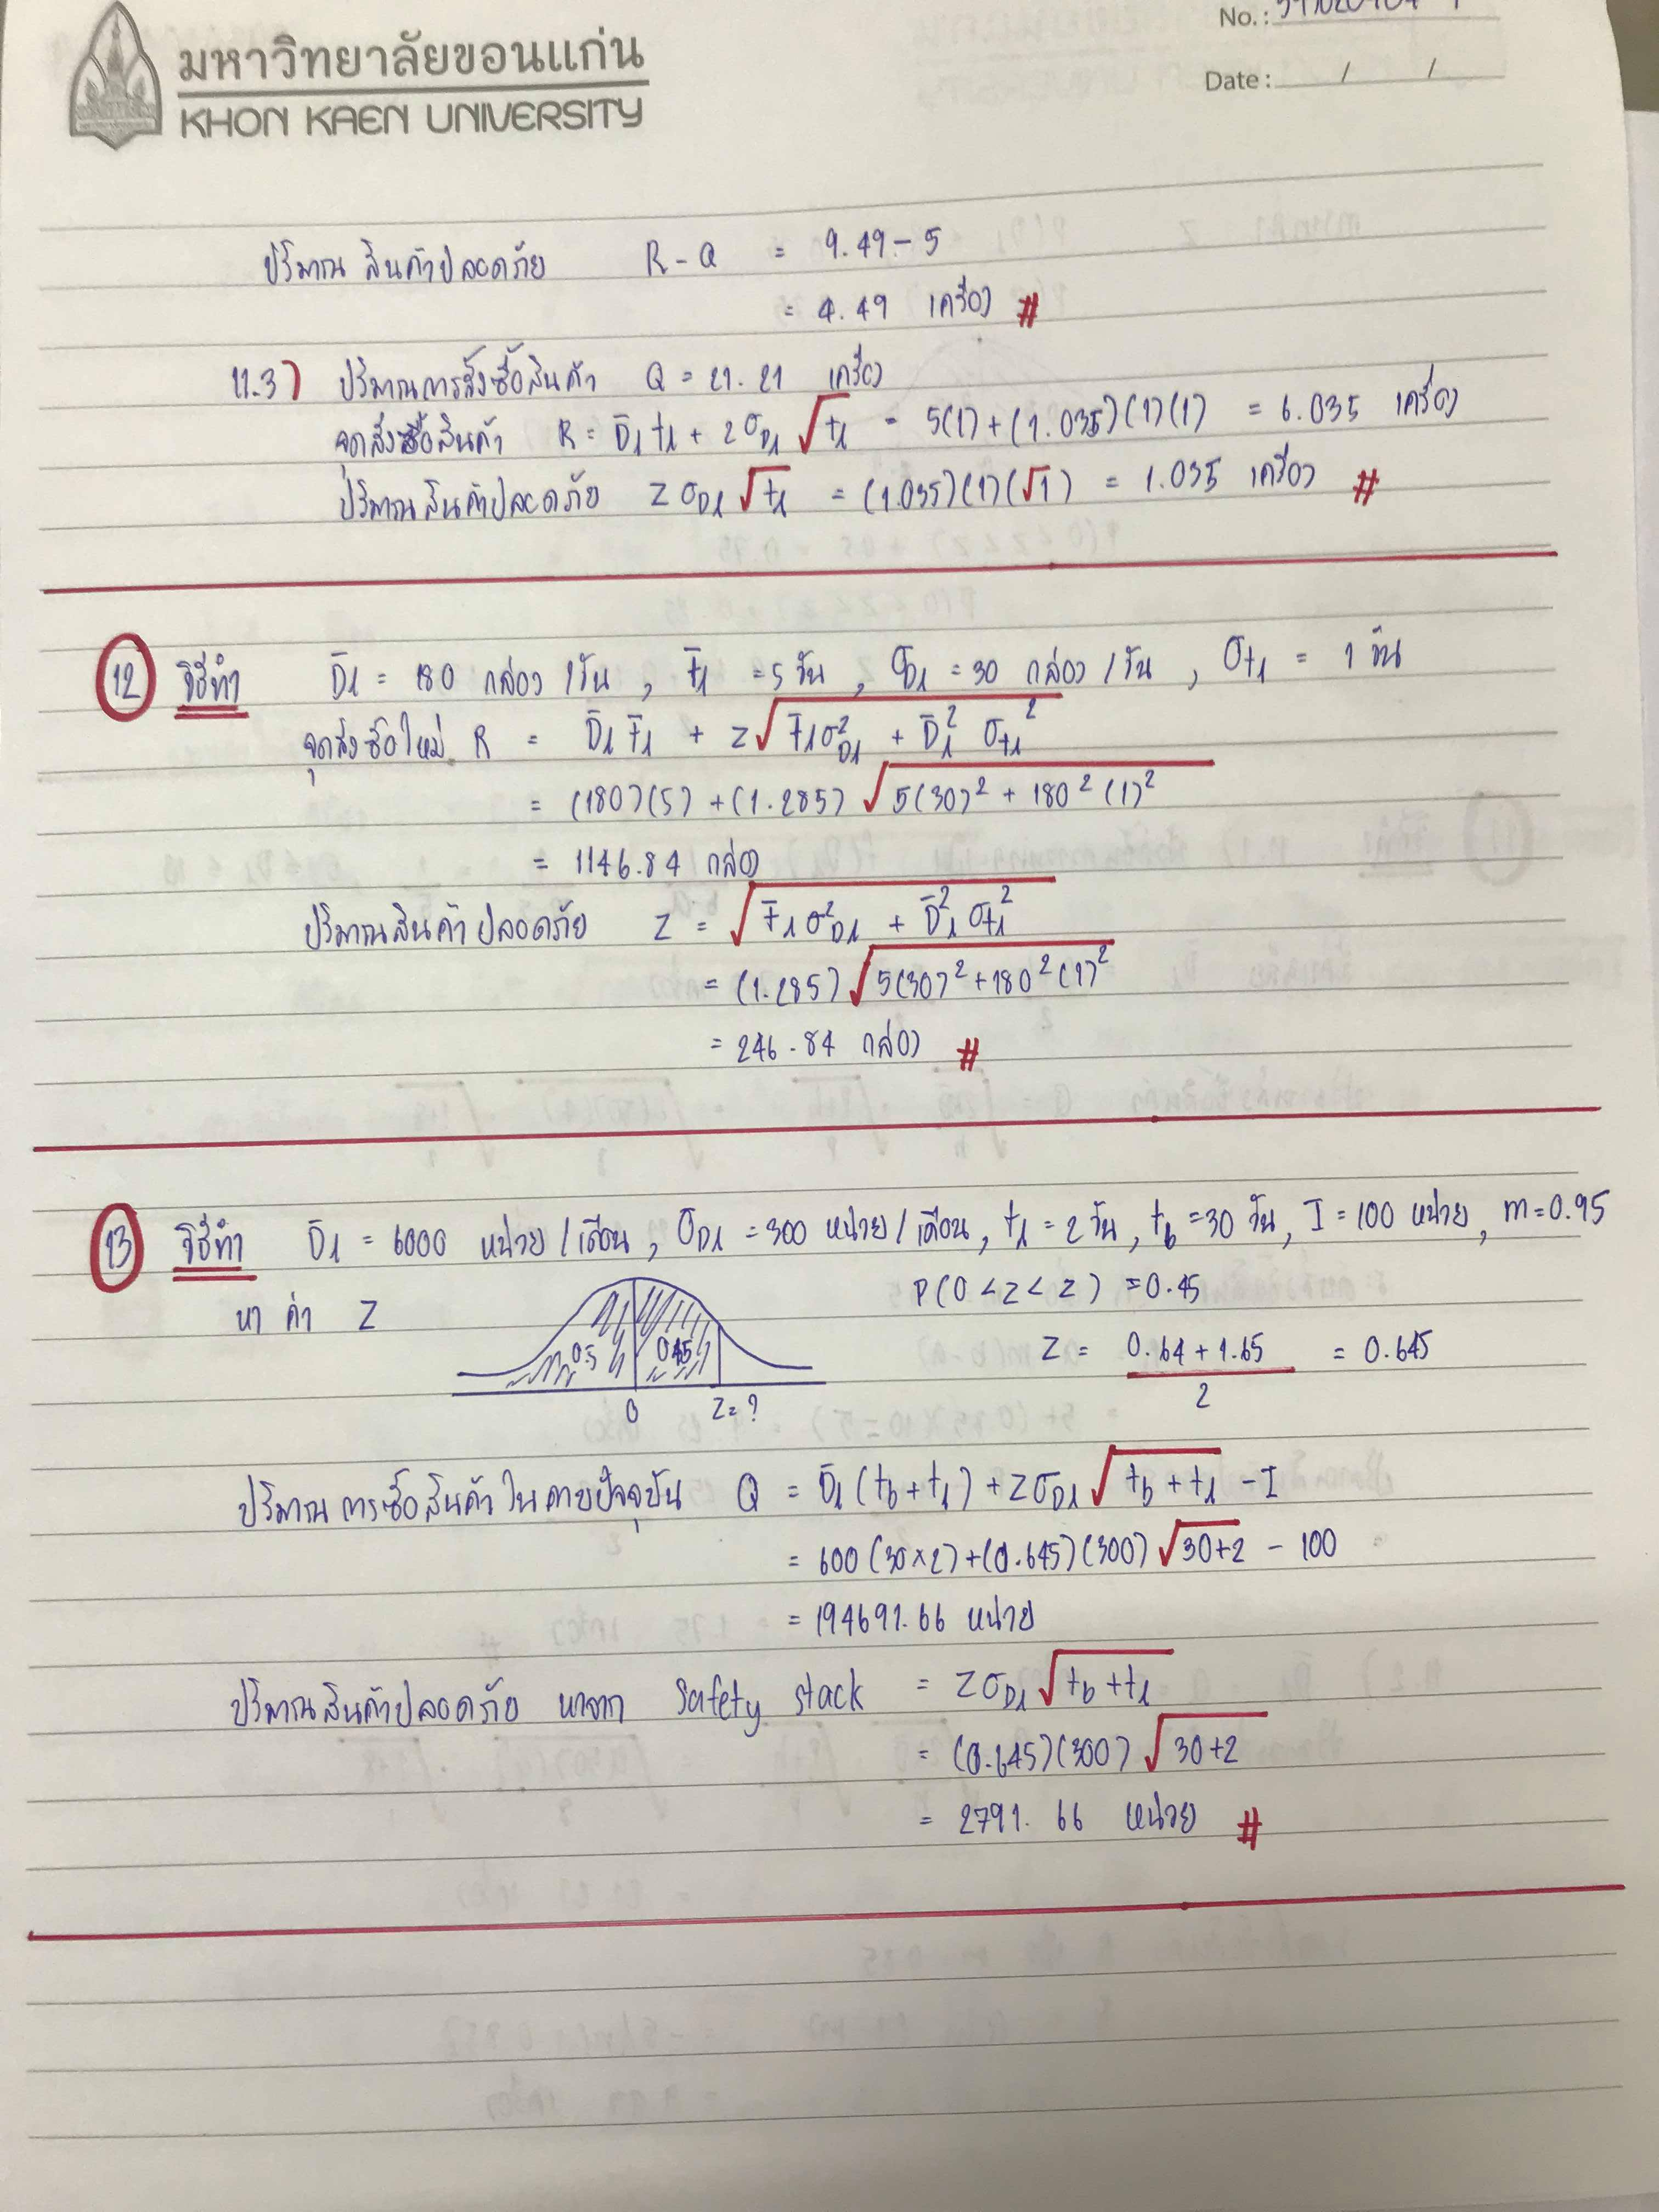 มหาวิทยาลัยขอนแก่น
KHON KAEN UNIVERSITY
No. :
Date : / /
ปริมาณสินค้าปลอดภัย R - Q = 9.49 - 5
= 4.49 เครื่อง #
11.3) ปริมาณการสั่งซื้อสินค้า Q = 21.21 เครื่อง
จุดสั่งซื้อสินค้า R = D̄₁t₁ + zσD₁√t₁ = 5(1) + (1.035)(1)(1) = 6.035 เครื่อง
ปริมาณสินค้าปลอดภัย ZσD₁√t₁ = (1.035)(1)(√1) = 1.035 เครื่อง #
12 วิธีทำ D̄₁ = 180 กล่อง/วัน, t̄₁ = 5 วัน, σD₁ = 30 กล่อง/วัน, σt₁ = 1 วัน
จุดสั่งซื้อใหม่ R = D̄₁ t̄₁ + z√t̄₁σ²D₁ + D̄₁² σt₁²
= (180)(5) + (1.285)√5(30)² + 180²(1)²
= 1146.84 กล่อง
ปริมาณสินค้าปลอดภัย Z = √t̄₁σ²D₁ + D̄₁²σt₁²
= (1.285)√5(30)² + 180²(1)²
= 246.84 กล่อง #
13 วิธีทำ D̄₁ = 6000 หน่วย/เดือน, σD₁ = 300 หน่วย/เดือน, t₁ = 2 วัน, tb = 30 วัน, I = 100 หน่วย, m = 0.95
หา ค่า Z
P(0 < z < z) = 0.45
0.5 0.45
Z = 0.64 + 1.65 / 2 = 0.645
0 Z = ?
ปริมาณการซื้อสินค้าในคาบปัจจุบัน Q = D̄₁(tb + t₁) + ZσD₁√tb + t₁ - I
= 600(30×2) + (0.645)(300)√30+2 - 100
= 194691.66 หน่วย
ปริมาณสินค้าปลอดภัย หาจาก Safety stack = ZσD₁√tb + t₁
= (0.645)(300)√30+2
= 2791.66 หน่วย #